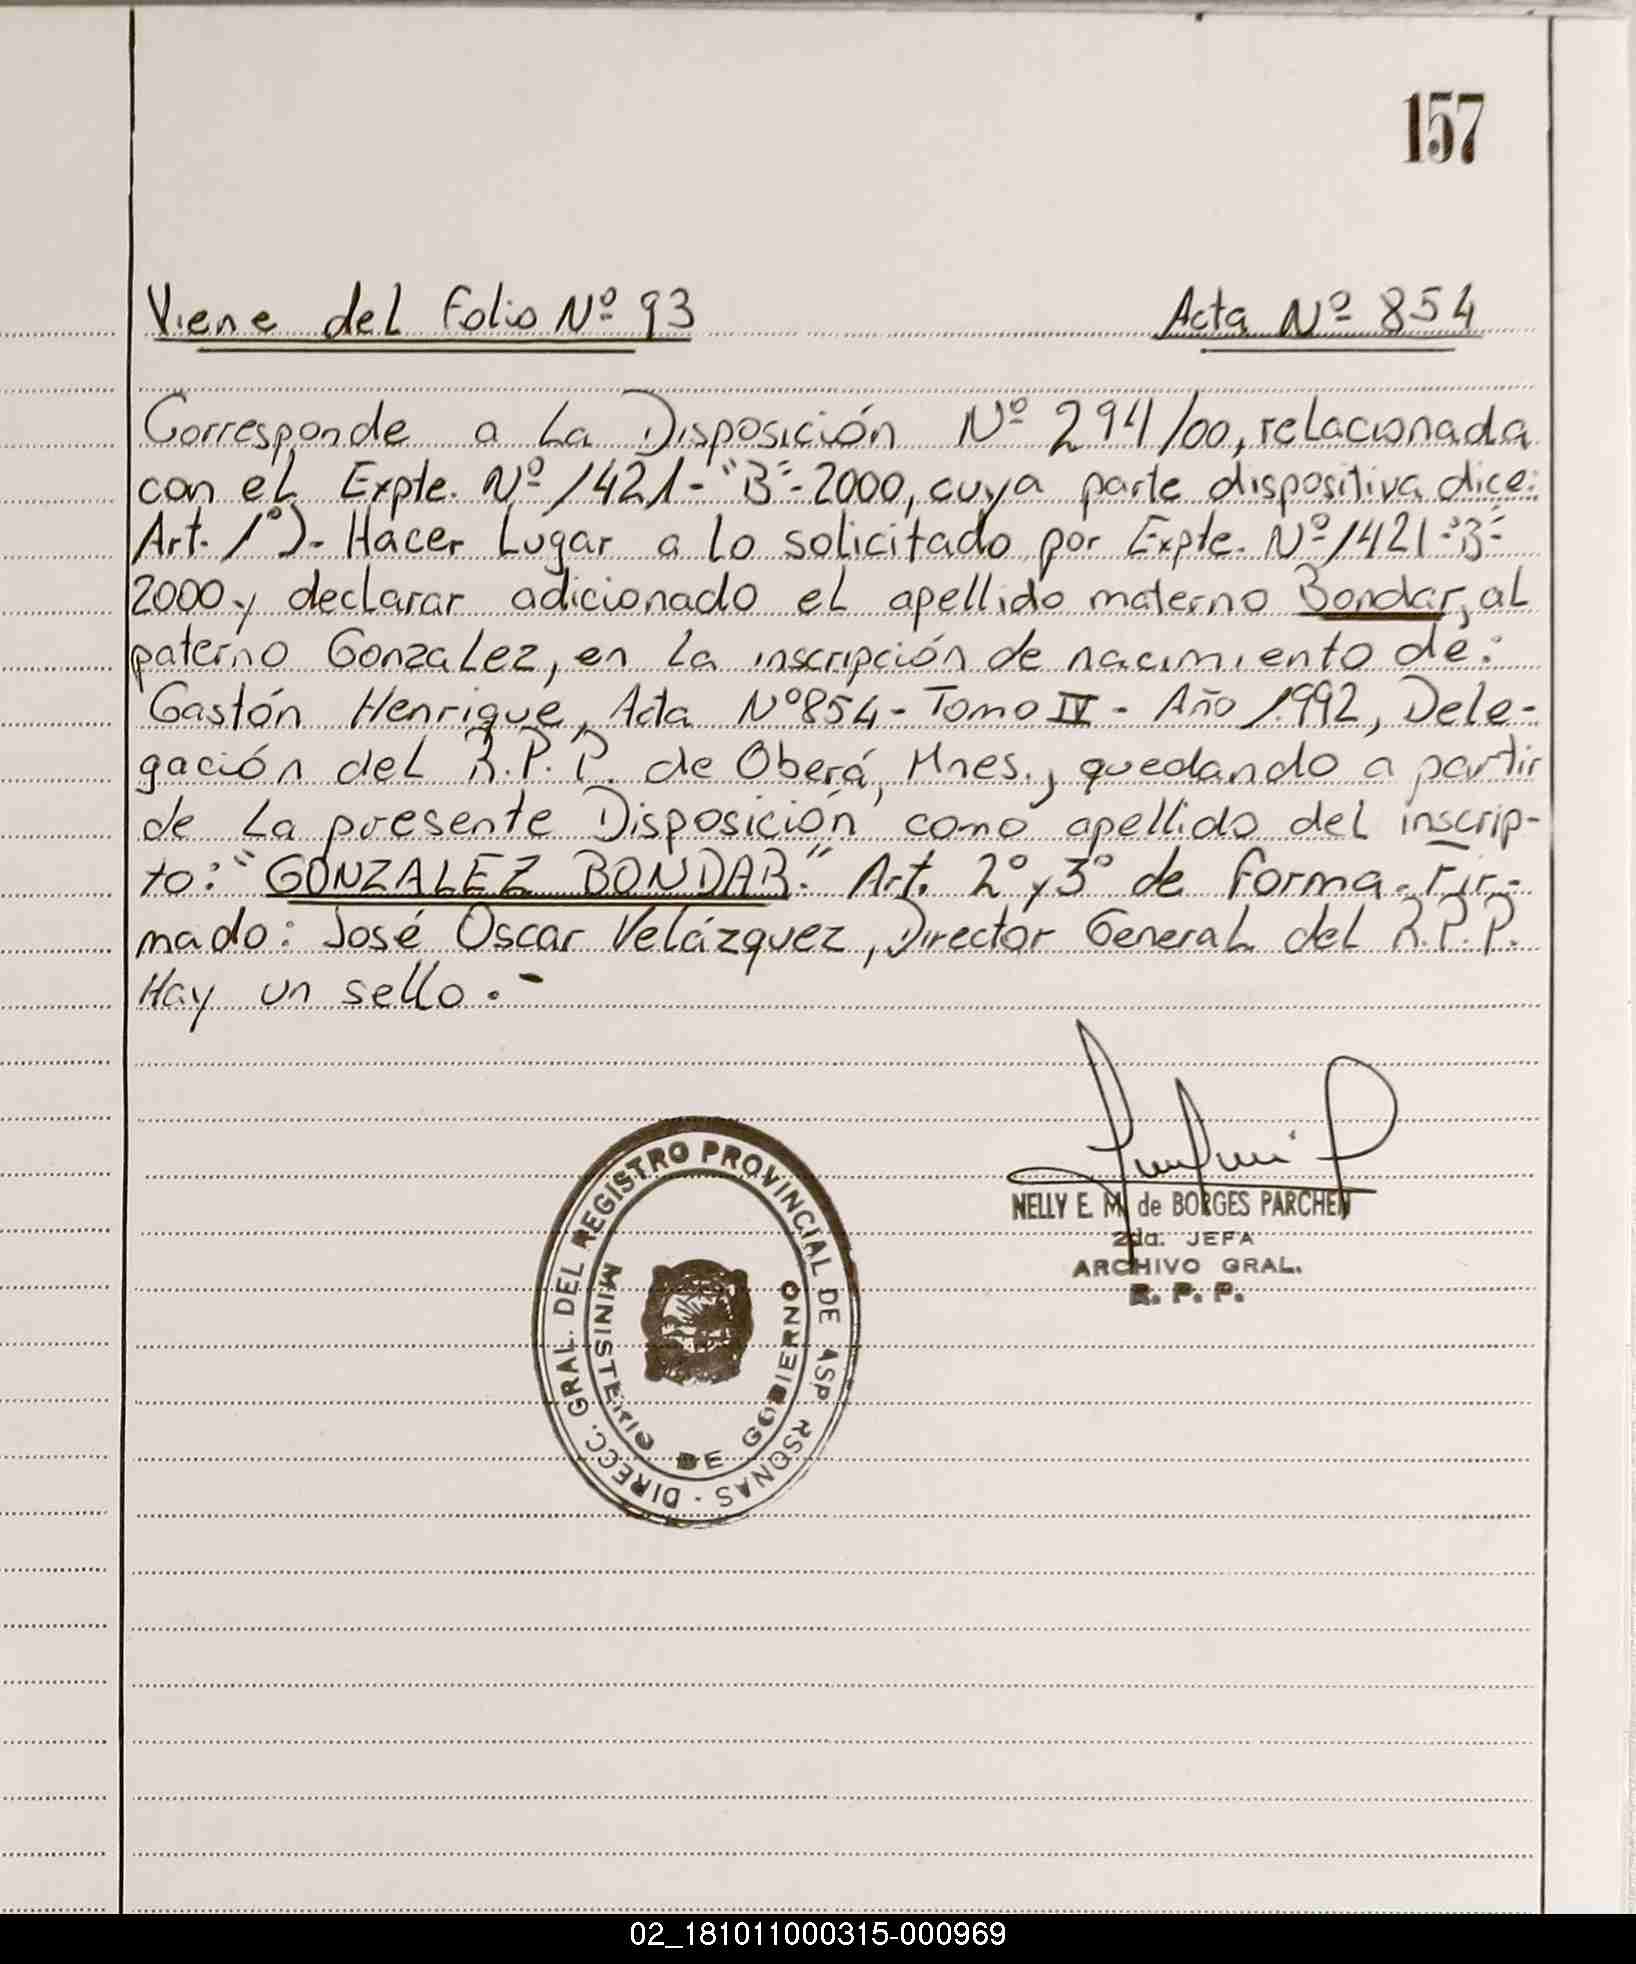 157
Viene del Folio Nº 93 Acta Nº 854
Corresponde a La Disposición Nº 294/00, relacionada
con el Expte. Nº 1421-"B"-2000, cuya parte dispositiva dice:
Art. 1º). Hacer Lugar a lo solicitado por Expte. Nº 1421-"B"-
2000 y declarar adicionado el apellido materno Bondar, al
paterno Gonzalez, en La inscripción de nacimiento de:
Gastón Henrique, Acta Nº 854 - Tomo IV - Año 1992, Dele-
gación del R.P.P. de Oberá, Mnes., quedando a partir
de La presente Disposición como apellido del inscrip-
to: "GONZALEZ BONDAR." Art. 2º y 3º de forma. Fir-
mado: José Oscar Velázquez, Director General del R.P.P.
Hay un sello.-
NELLY E. M. de BORGES PARCHEN
2da. JEFA
ARCHIVO GRAL.
R. P. P.
DIRECC. GRAL. DEL REGISTRO PROVINCIAL DE ASP RSONAS -
MINISTERIO DE GOBIERNO
02_181011000315-000969